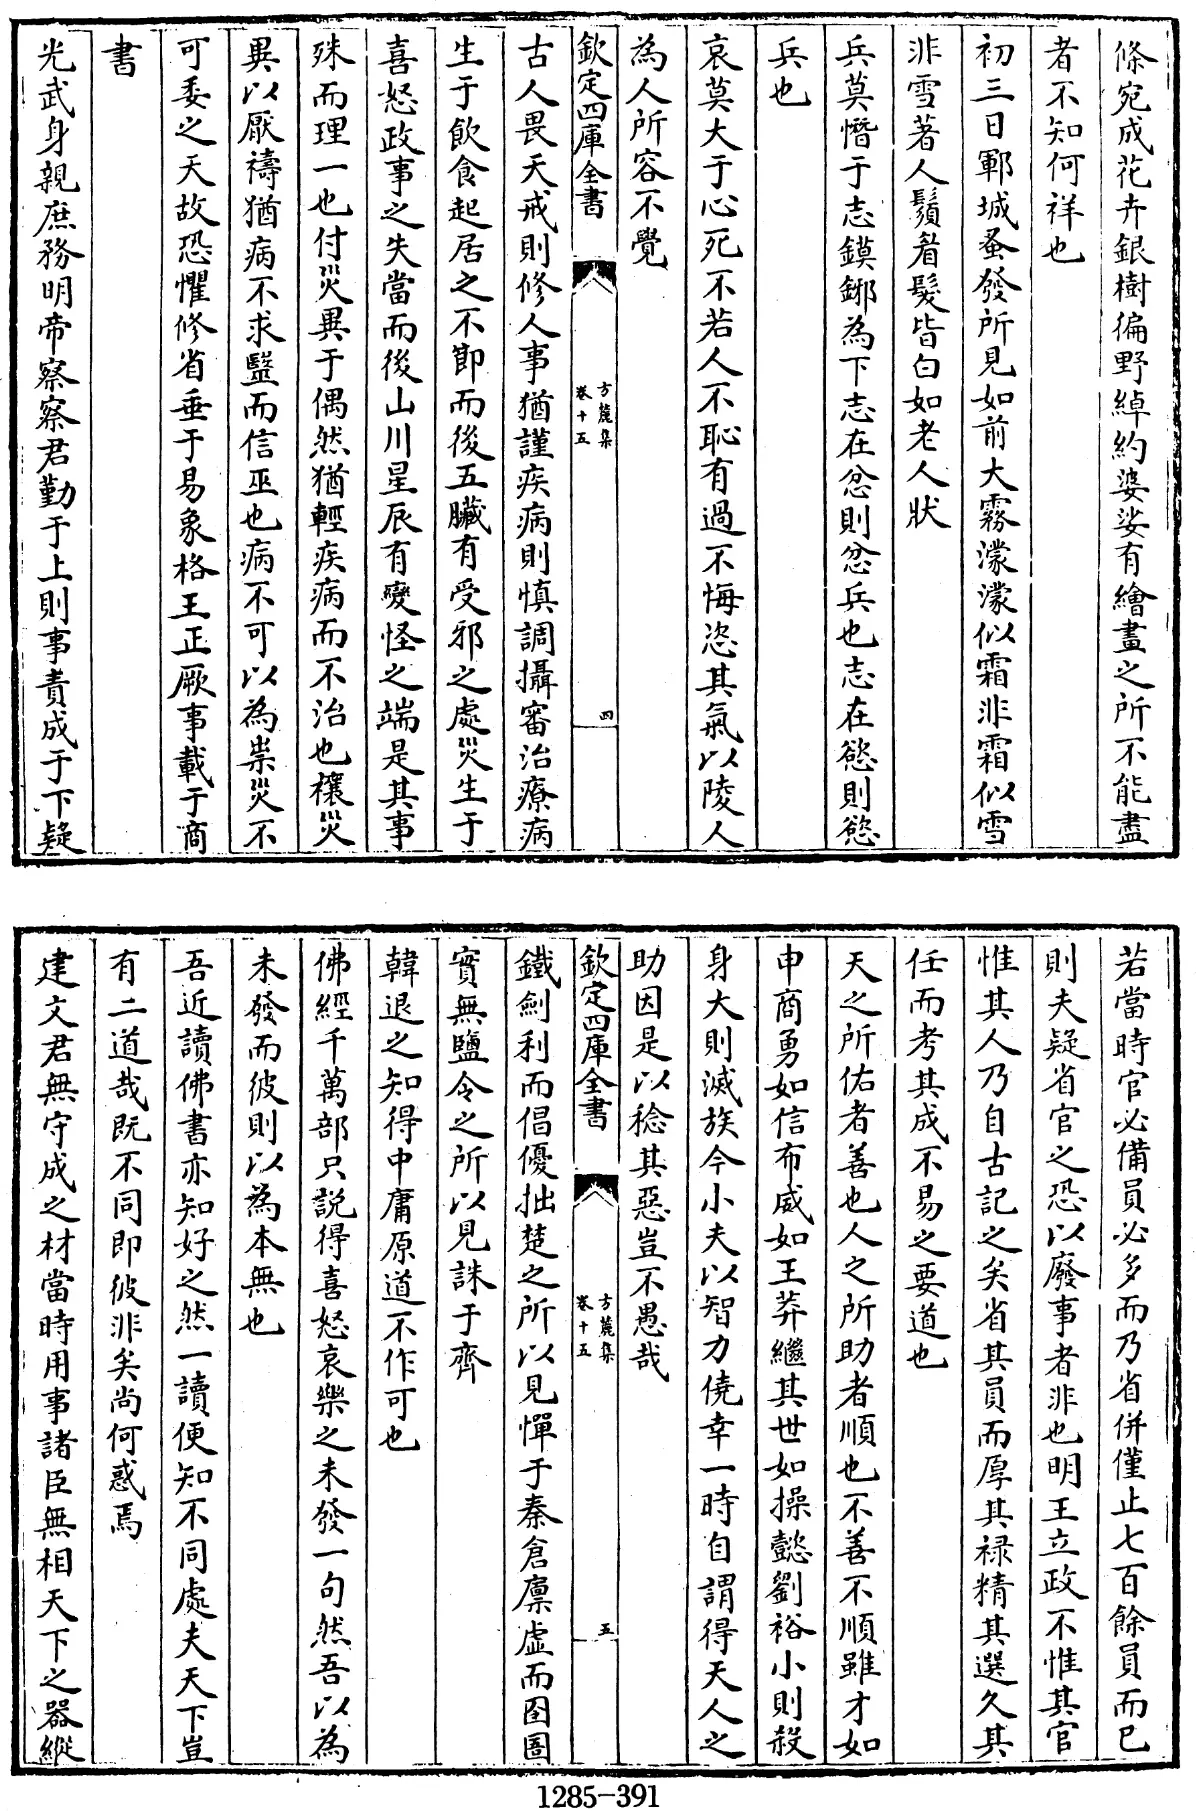 條宛成花卉銀樹徧野綽約婆娑有繪畫之所不能盡
者不知何祥也
初三日鄆城蚤發所見如前大霧濛濛似霜非霜似雪
非雪著人鬚着髮皆白如老人狀
兵莫憯于志鏌鋣為下志在忿則忿兵也志在慾則慾
兵也
哀莫大于心死不若人不恥有過不悔恣其氣以陵人
為人所容不覺
欽定四庫全書
方麓集
卷十五
四
古人畏天戒則修人事猶謹疾病則慎調攝審治療病
生于飲食起居之不節而後五臟有受邪之處災生于
喜怒政事之失當而後山川星辰有變怪之端是其事
殊而理一也付災異于偶然猶輕疾病而不治也禳災
異以厭禱猶病不求毉而信巫也病不可以為祟災不
可委之天故恐懼修省垂于易象格王正厥事載于商
書
光武身親庶務明帝察察君勤于上則事責成于下疑
若當時官必備員必多而乃省併僅止七百餘員而已
則夫疑省官之恐以廢事者非也明王立政不惟其官
惟其人乃自古記之矣省其員而厚其祿精其選久其
任而考其成不易之要道也
天之所佑者善也人之所助者順也不善不順雖才如
申商勇如信布威如王莽繼其世如操懿劉裕小則殺
身大則滅族今小夫以智力僥幸一時自謂得天人之
助因是以稔其惡豈不愚哉
欽定四庫全書
方麓集
卷十五
五
鐵劍利而倡優拙楚之所以見憚于秦倉廩虛而囹圄
實無鹽令之所以見誅于齊
韓退之知得中庸原道不作可也
佛經千萬部只說得喜怒哀樂之未發一句然吾以為
未發而彼則以為本無也
吾近讀佛書亦知好之然一讀便知不同處夫天下豈
有二道哉既不同即彼非矣尚何惑焉
建文君無守成之材當時用事諸臣無相天下之器縱
1285-391